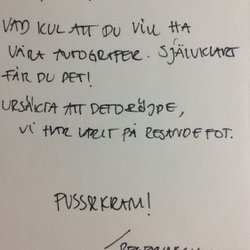 VAD KUL ATT DU VILL HA
VÅRA AUTOGRAFER. SJÄLVKLART
FÅR DU DET!
URSÄKTA ATT DET DRÖJDE,
VI HAR VARIT PÅ RESANDE FOT.
PUSS&KRAM!